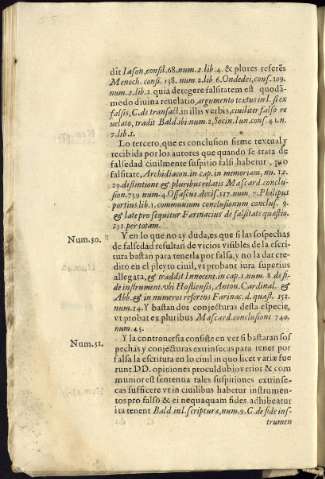 dit Iason, consil. 68. num. 2. lib. 4. & plores referẽs
Menoch. consi. 138. num. 2. lib. 6. Ondedei, cons. 109.
num. 2. lib. 2. quia detegere falsitatem est quodã-
modo divina reuelatio, argumento textus in l. si ex
falsis, C. de transact. in illis verbis, ciuiliter falso re
uelato, tradit Bald. ibi num. 2. Socin. Iun. cons. 41. n.
7. lib. 1.
Lo tercero, que es conclusion firme textual y
recibida por los autores que quando se trata de
falsedad ciuilmente sufficit falsi haberi, pro
falsitate, Archidiacon. in cap. in memoriam, nu. 12.
19. distinctione & pluribus relatis Mascard. conclu-
sion. 739. num. 4. Osascus decis. 137. num. 7. Philipus
portius lib. 1. communium conclusionum conclus. 9.
& late pro sequitur Farinacius de falsitate quæstio.
151. per totam.
Num. 30. Y en lo que no ay duda, es que si las sospechas
de falsedad resultan de vicios visibles de la escri
tura bastan para tenerla por falsa, y no la dar cre-
dito en el pleyto ciuil, vt probant iura superius
allegata, & tradit Innocent. in cap. 1. num. 8. de fi-
de instrument. vbi Hostiensis, Anton. Cardinal. &
Abb. & in numeros referens Farinac. d. quæst. 152.
num. 14. Y bastan dos conjecturas desta especie,
vt probat ex pluribus Mascard. conclusione 740.
num. 45.
Num. 31. Y la controuersia consiste en ver si bastaran sos
pechas y conjecturas extrinsecas para tener por
falsa la escritura en lo ciuil in quo licet variæ fue
runt DD. opiniones procul dubio verior & com
munior est sententia tales suspitiones extrinse-
cas sufficere vt in ciuilibus habetur instrumen-
tos pro falso & ei nequaquam fides adhibeatur
ita tenent Bald. in l. scripturæ, num. 9. C. de fide ins-
trumen